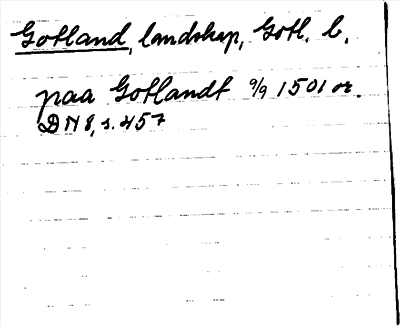 Gotland, landskap, Gotl. l.
paa Gotlandt 9/9 1501 or.
DN 8, s. 457